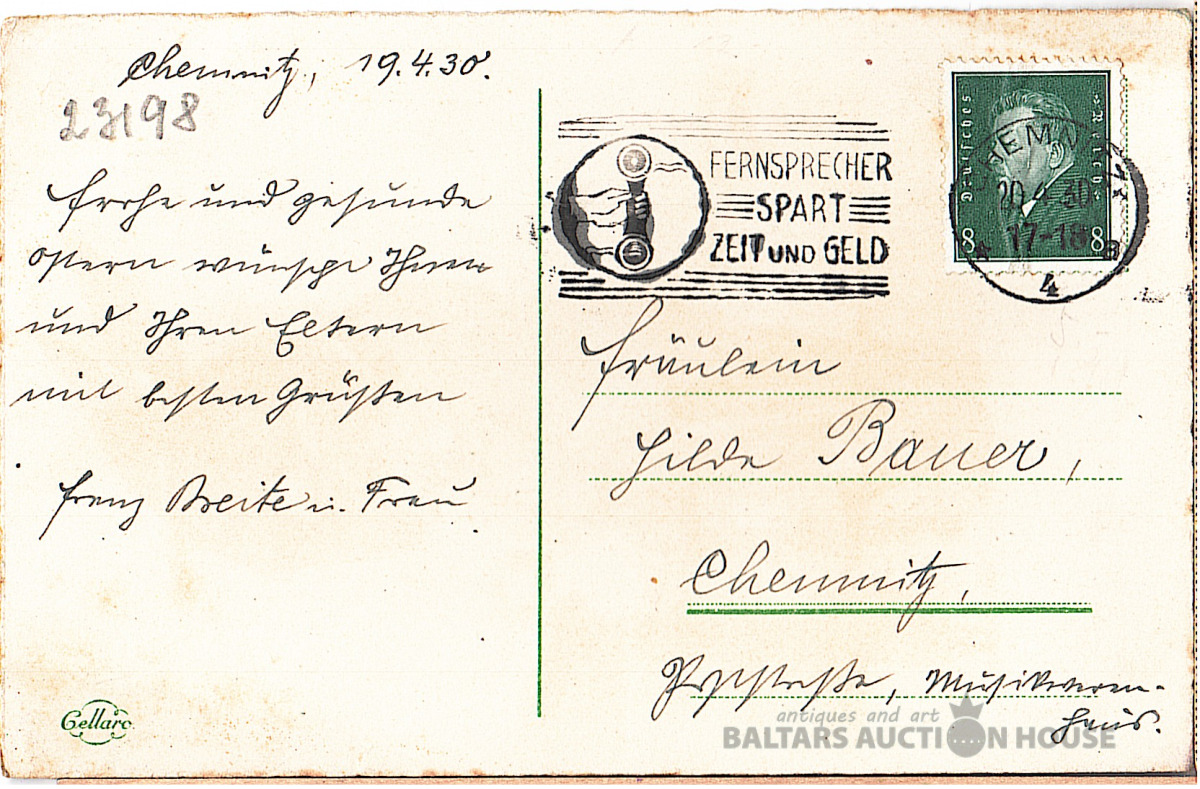 Chemnitz, 19.4.30.
23198
Frohe und gesunde
Ostern wünscht Ihnen
und Ihren Eltern
mit besten Grüßen
Franz Breite u. Frau
Cellaro
FERNSPRECHER
SPART
ZEIT UND GELD
Deutsches Reich
8 8
CHEMNITZ
20.4.30
17-18
* B
4
Fräulein
Hilde Bauer,
Chemnitz,
Poststraße, Musikwaren-
haus.
antiques and art
BALTARS AUCTION HOUSE